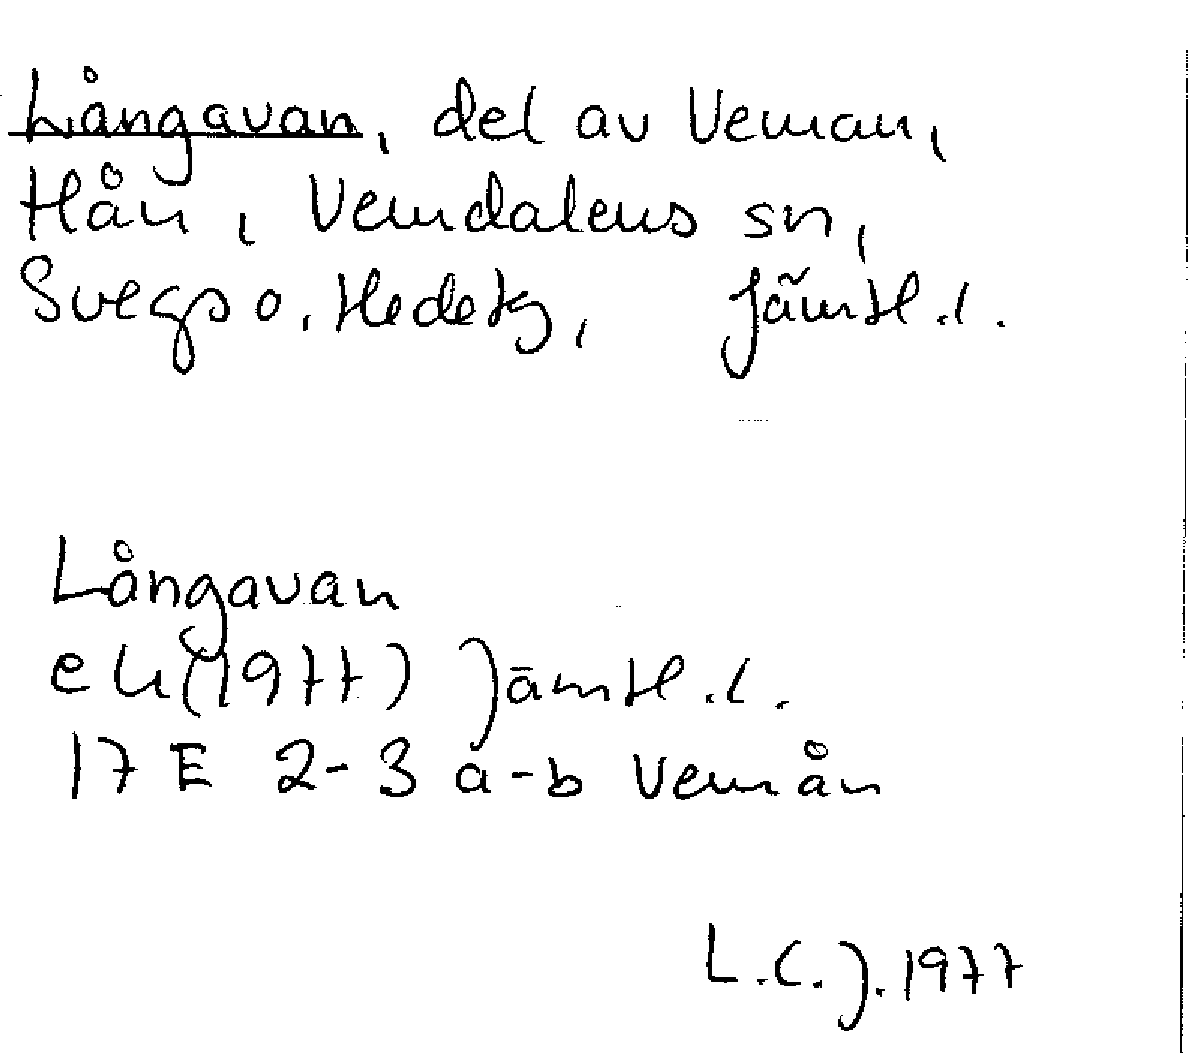 Långavan, del av Veman,
Hån, Vemdalens sn,
Svegs o. Hedetg, Jämtl.l.
Långavan
ek (1977) Jämtl.l.
17 E 2-3 a-b Vemån
L.C.J. 1977